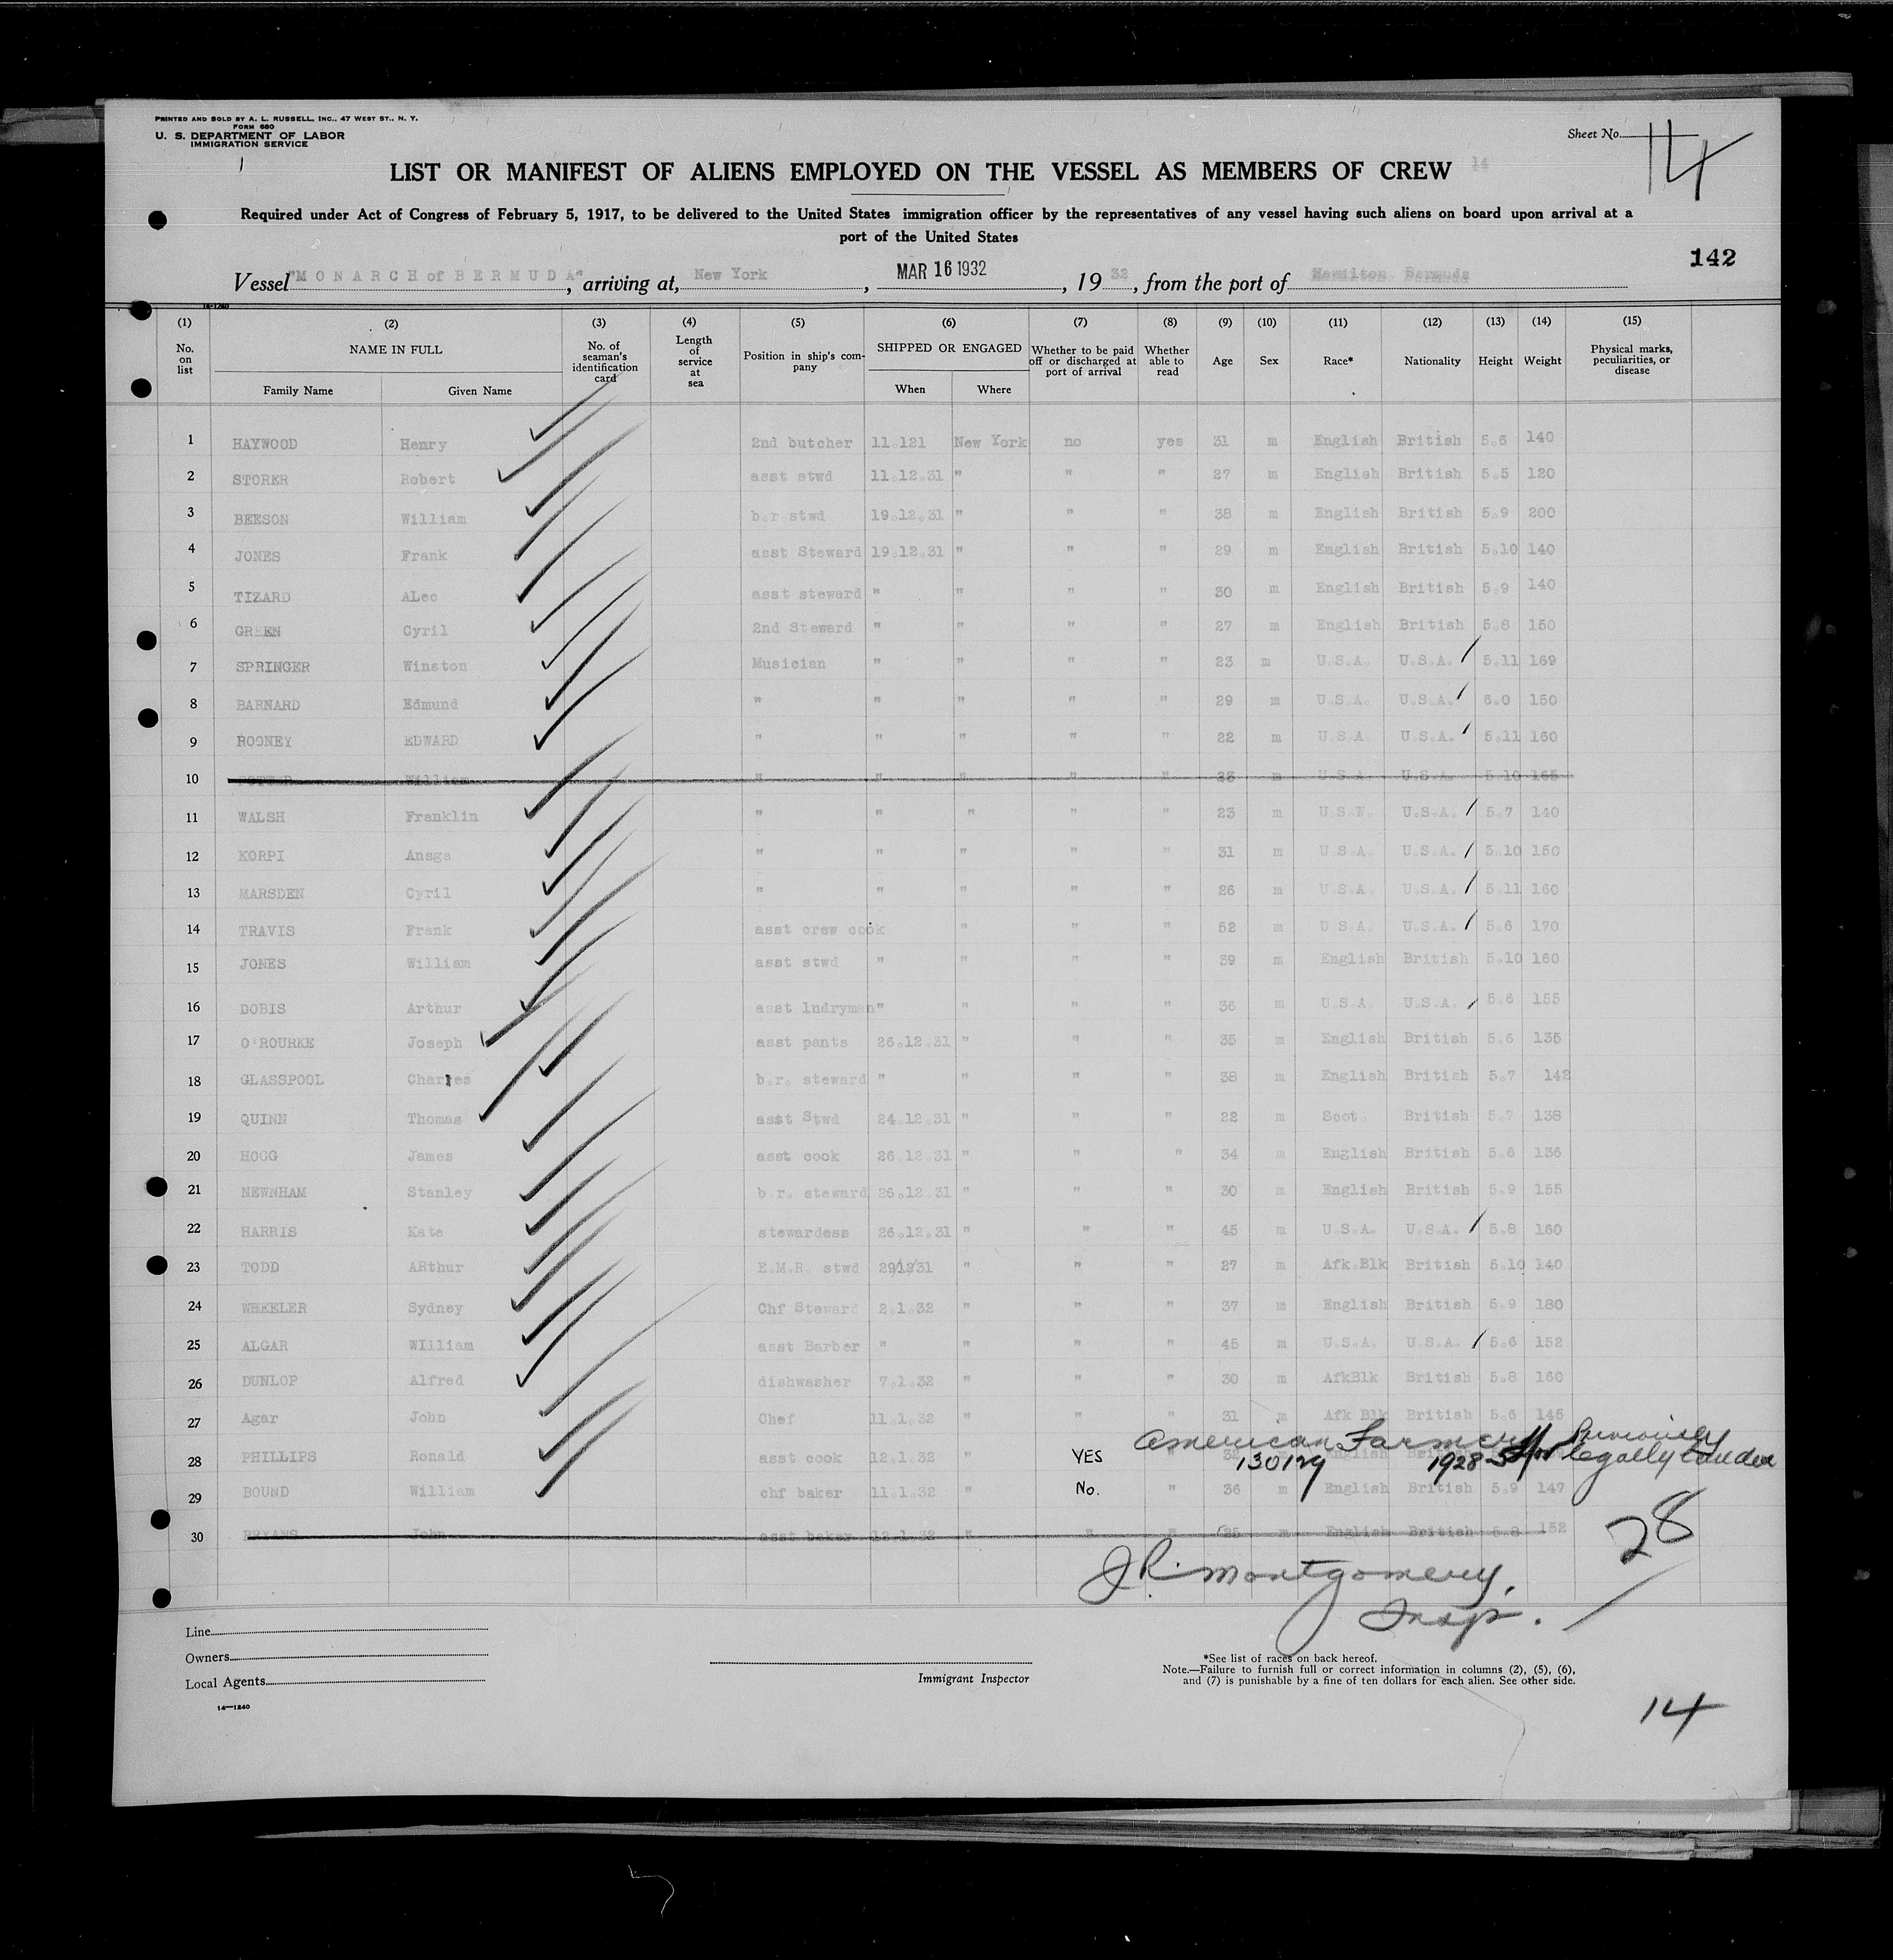 PRINTED AND SOLD BY A. L. RUSSELL, INC., 47 WEST ST., N. Y.
FORM 680
U. S. DEPARTMENT OF LABOR
IMMIGRATION SERVICE
Sheet No. 14
LIST OR MANIFEST OF ALIENS EMPLOYED ON THE VESSEL AS MEMBERS OF CREW 14
Required under Act of Congress of February 5, 1917, to be delivered to the United States immigration officer by the representatives of any vessel having such aliens on board upon arrival at a
port of the United States
142
Vessel "MONARCH of BERMUDA", arriving at, New York, MAR 16 1932, 19 32, from the port of Hamilton Bermuda
14-1240
(1) (2) (3) (4) (5) (6) (7) (8) (9) (10) (11) (12) (13) (14) (15)
No. on list NAME IN FULL No. of seaman's identification card Length of service at sea Position in ship's company SHIPPED OR ENGAGED Whether to be paid off or discharged at port of arrival Whether able to read Age Sex Race* Nationality Height Weight Physical marks, peculiarities, or disease
Family Name Given Name When Where
1 HAYWOOD Henry 2nd butcher 11.121 New York no yes 31 m English British 5.6 140
2 STORER Robert asst stwd 11.12.31 " " " 27 m English British 5.5 120
3 BEESON William b.r.stwd 19.12.31 " " " 38 m English British 5.9 200
4 JONES Frank asst Steward 19.12.31 " " " 29 m English British 5.10 140
5 TIZARD ALec asst steward " " " " 30 m English British 5.9 140
6 GREEN Cyril 2nd Steward " " " " 27 m English British 5.8 150
7 SPRINGER Winston Musician " " " " 23 m U.S.A. U.S.A. 5.11 169
8 BARNARD Edmund " " " " " 29 m U.S.A. U.S.A. 6.0 150
9 ROONEY EDWARD " " " " " 22 m U.S.A. U.S.A. 5.11 160
10 POTTER William " " " " " 23 m U.S.A. U.S.A. 5.10 165
11 WALSH Franklin " " " " " 23 m U.S.W. U.S.A. 5.7 140
12 KORPI Ansga " " " " " 31 m U.S.A. U.S.A. 5.10 150
13 MARSDEN Cyril " " " " " 26 m U.S.A. U.S.A. 5.11 160
14 TRAVIS Frank asst crew cook " " " 52 m U.S.A. U.S.A. 5.6 170
15 JONES William asst stwd " " " " 39 m English British 5.10 160
16 DOBIS Arthur asst lndryman " " " " 36 m U.S.A. U.S.A. 5.6 155
17 O'ROURKE Joseph asst pants 26.12.31 " " " 35 m English British 5.6 135
18 GLASSPOOL Charles b.r. steward " " " " 38 m English British 5.7 142
19 QUINN Thomas asst Stwd 24.12.31 " " " 22 m Scot. British 5.7 138
20 HOGG James asst cook 26.12.31 " " " 34 m English British 5.6 136
21 NEWNHAM Stanley b.r. steward 26.12.31 " " " 30 m English British 5.9 155
22 HARRIS Kate stewardess 26.12.31 " " " 45 m U.S.A. U.S.A. 5.8 160
23 TODD ARthur E.M.R. stwd 29/12/31 " " " 27 m Afk.Blk British 5.10 140
24 WHEELER Sydney Chf Steward 2.1.32 " " " 37 m English British 5.9 180
25 ALGAR WIlliam asst Barber " " " " 45 m U.S.A. U.S.A. 5.6 152
26 DUNLOP Alfred dishwasher 7.1.32 " " " 30 m AfkBlk British 5.8 160
27 Agar John Chef 11.1.32 " " " 31 m Afk Blk British 5.6 145
American Farmer Previously
28 PHILLIPS Ronald asst cook 12.1.32 " YES " 32 English British legally landed
130129 1928
29 BOUND William chf baker 11.1.32 " No. " 36 m English British 5.9 147
30 John asst baker 12.1.32 " " " 25 m English British 5.8 152
28
J.R. Montgomery,
Insp.
Line
Owners
Local Agents
Immigrant Inspector
*See list of races on back hereof.
Note.—Failure to furnish full or correct information in columns (2), (5), (6),
and (7) is punishable by a fine of ten dollars for each alien. See other side.
14—1240
14